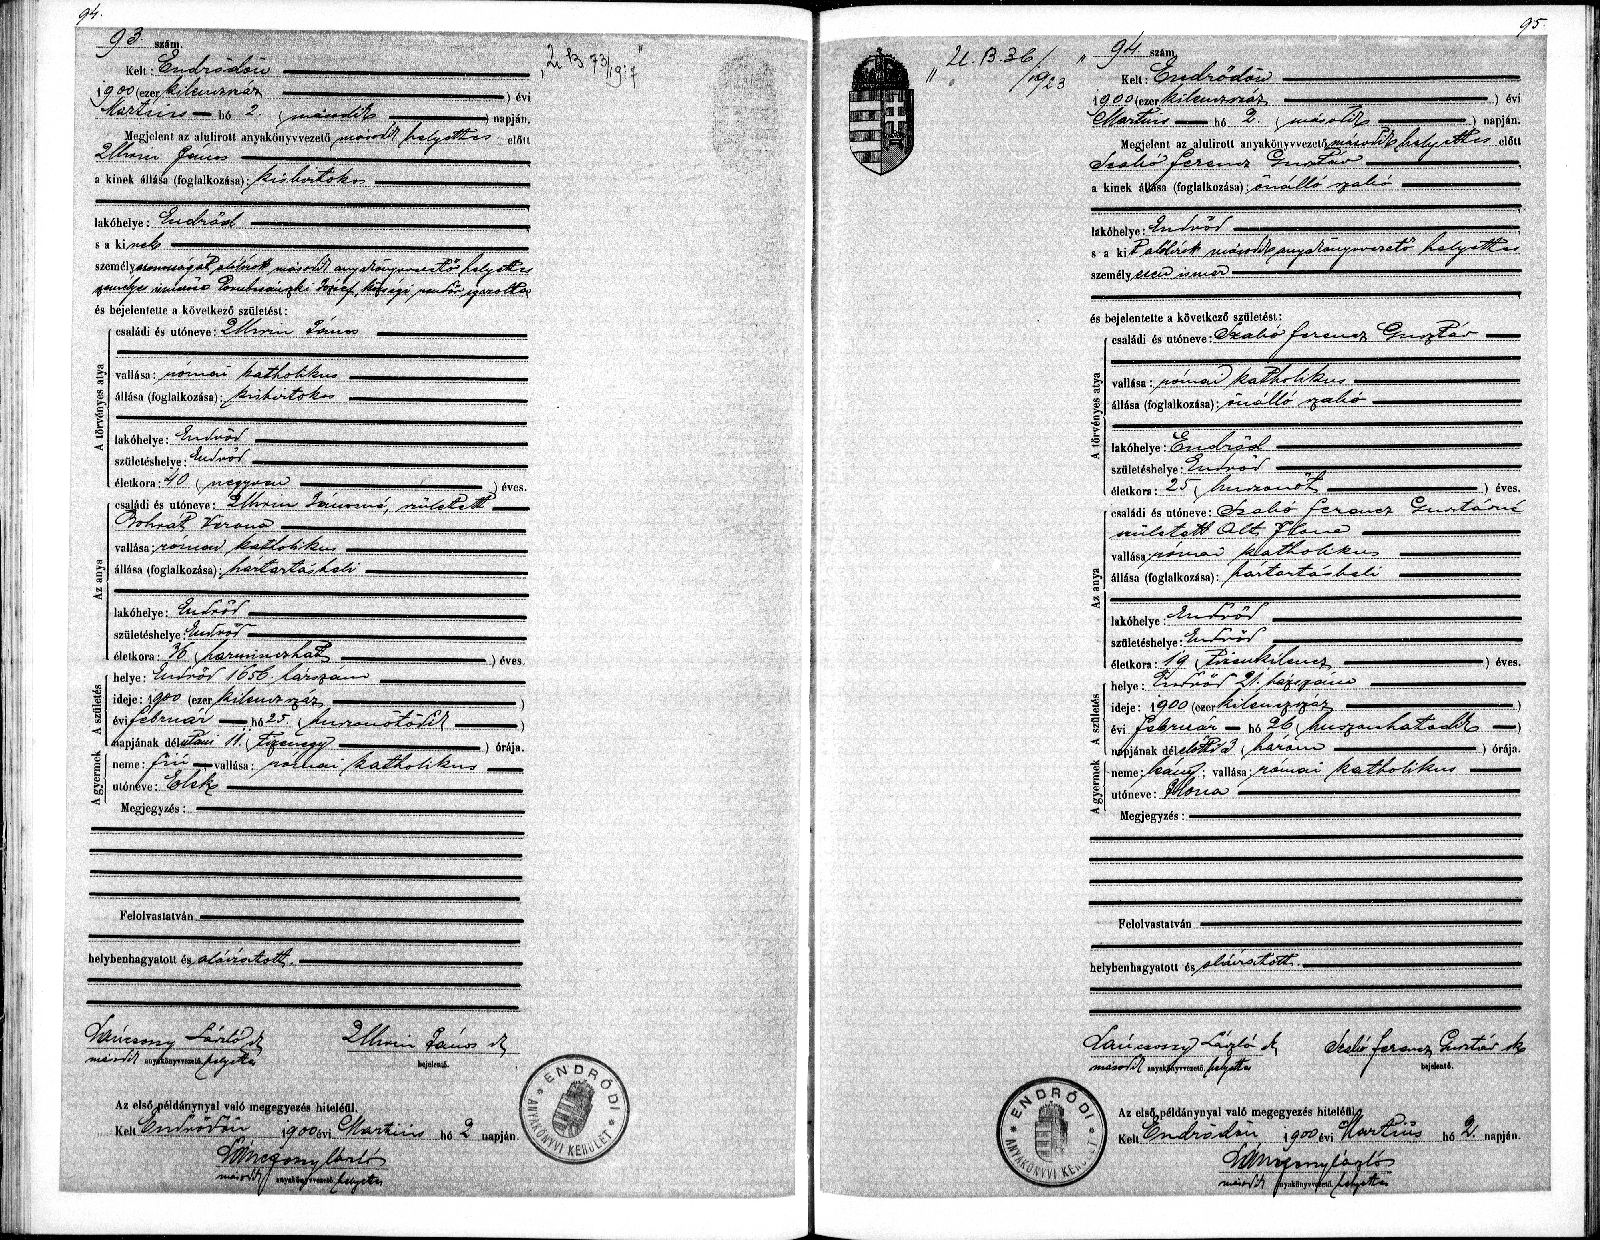 94.
93 szám.
Kelt: Endrődön
1900 (ezer kilenczszáz) évi
Martius hó 2. (második) napján.
Megjelent az alulirott anyakönyvvezető második helyettes előtt
János
a kinek állása (foglalkozása): kisbirtokos
lakóhelye: Endrőd
s a kinek
személyazonosságát alólirott második anyakönyvvezető helyettes
személyes József, községi rendőr igazolta
és bejelentette a következő születést:
A törvényes atya
családi és utóneve: János
vallása: római katholikus
állása (foglalkozása): kisbirtokos
lakóhelye: Endrőd
születéshelye: Endrőd
életkora: 40 (negyven) éves.
Az anya
családi és utóneve: Jánosné, született
Verona
vallása: római katholikus
állása (foglalkozása): háztartásbeli
lakóhelye: Endrőd
születéshelye: Endrőd
életkora: 36 (harminczhat) éves.
A születés
helye: Endrőd 1656. házszám
ideje: 1900 (ezer kilenczszáz)
évi február hó 25. (huszonötödik)
napjának délutáni 11. (tizenegy) órája.
A gyermek
neme: fiú vallása: római katholikus
utóneve: Elek
Megjegyzés:
Felolvastatván
helybenhagyatott és aláiratott.
Lánczony László sk János sk
második anyakönyvvezető helyettes bejelentő.
Az első példánynyal való megegyezés hiteléül.
Kelt Endrődön 1900 évi Martius hó 2 napján.
Lánczony László
második anyakönyvvezető helyettes
ENDRŐDI
ANYAKÖNYVI KERÜLET
95.
94. szám
Kelt: Endrődön
1900 (ezer kilenczszáz) évi
Martius hó 2. (második) napján.
Megjelent az alulirott anyakönyvvezető második helyettes előtt
Szabó Ferencz Gusztáv
a kinek állása (foglalkozása): önálló szabó
lakóhelye: Endrőd
s a kit alólirók második anyakönyvvezető helyettes
személyesen ismer
és bejelentette a következő születést:
A törvényes atya
családi és utóneve: Szabó Ferencz Gusztáv
vallása: római katholikus
állása (foglalkozása): önálló szabó
lakóhelye: Endrőd
születéshelye: Endrőd
életkora: 25 (huszonöt) éves.
Az anya
családi és utóneve: Szabó Ferencz Gusztávné
született Ilona
vallása: római katholikus
állása (foglalkozása): háztartásbeli
lakóhelye: Endrőd
születéshelye: Endrőd
életkora: 19 (Tizenkilencz) éves.
A születés
helye: Endrőd 21. házszáma
ideje: 1900 (ezer kilenczszáz)
évi Február hó 26 (huszonhatodik)
napjának délelőtti 3 (három) órája.
A gyermek
neme: leány; vallása: római katholikus
utóneve: Ilona
Megjegyzés:
Felolvastatván
helybenhagyatott és aláiratott.
Lánczony László sk Szabó Ferencz Gusztáv sk
második anyakönyvvezető helyettes bejelentő.
Az első példánynyal való megegyezés hiteléül.
Kelt Endrődön, 1900 évi Martius hó 2. napján.
Lánczony László
második anyakönyvvezető helyettes
ENDRŐDI
ANYAKÖNYVI KERÜLET